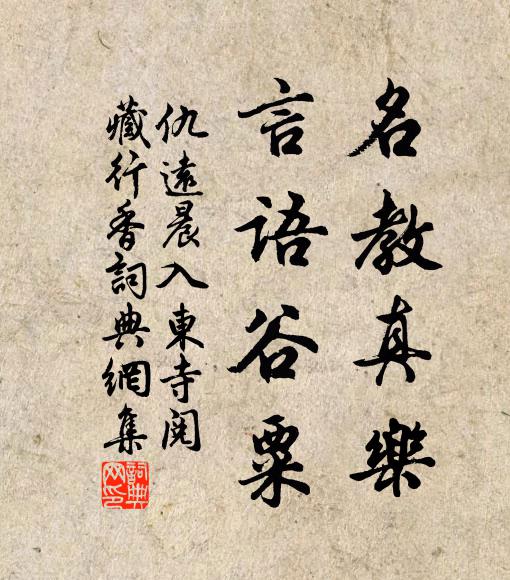 名教真樂
言語谷粟
仇遠晨入東寺閱
藏行香詞典網集
詞典网印